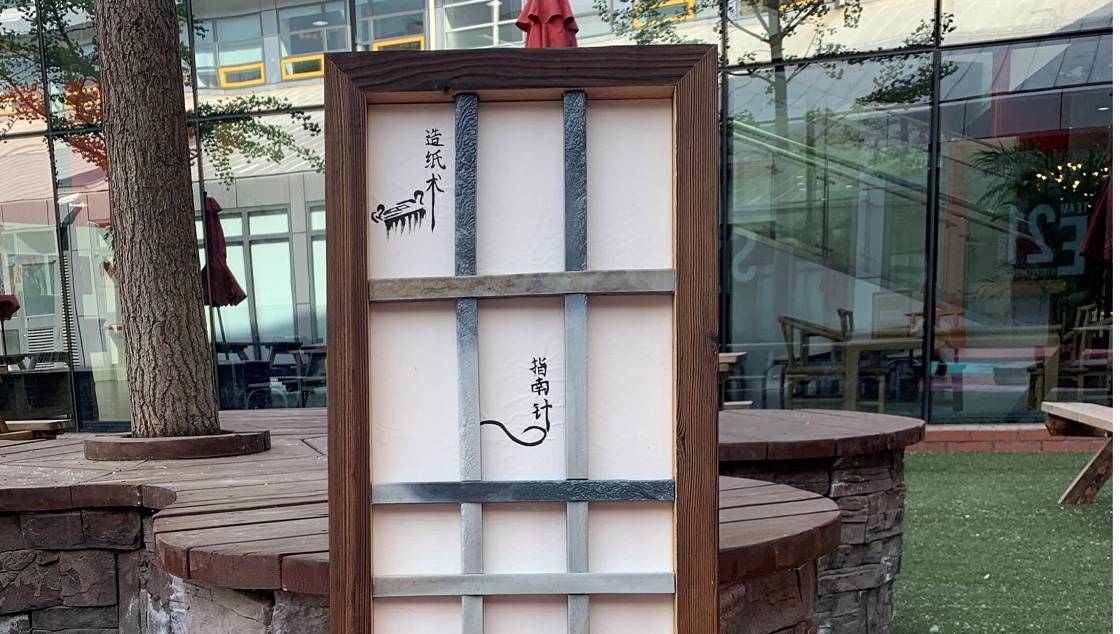 造纸术
指南针
E2